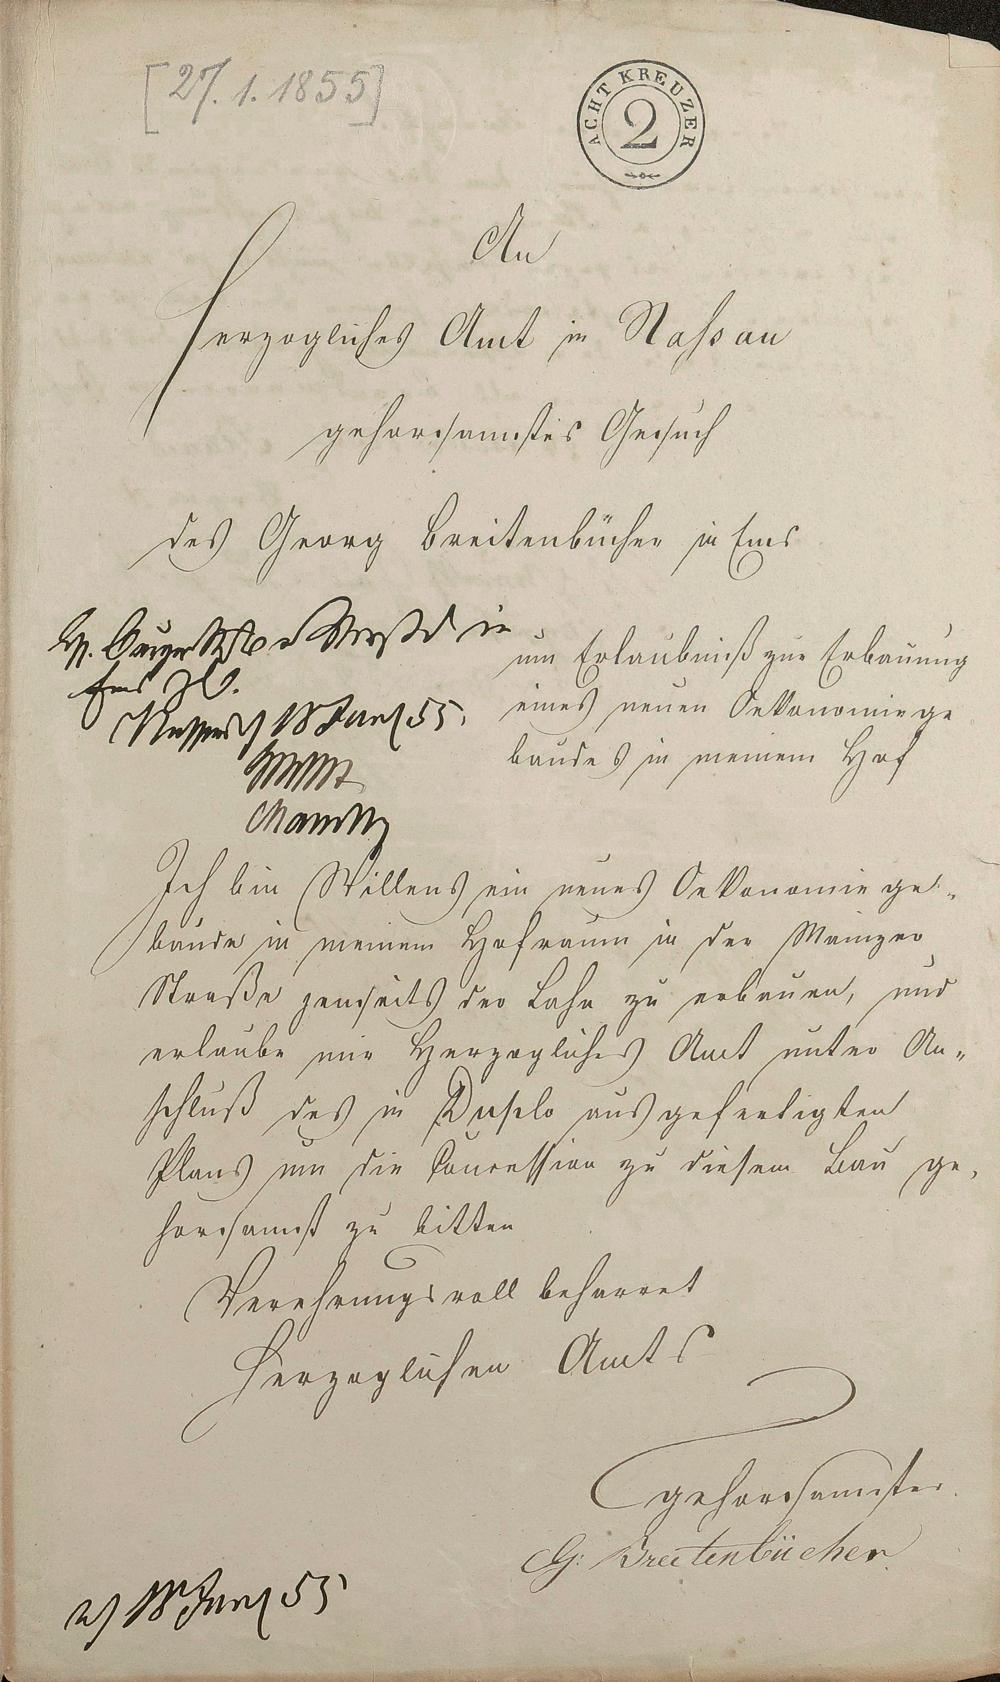 [27.1.1855]
ACHT KREUZER
2
An
Herzogliches Amt in Nassau
gehorsamstes Gesuch
des Georg Breitenbücher in Ems
um Erlaubniß zur Erbauung
eines neuen Oekonomiege
baudes in meinem Hof
in
Ems
18 Jan 55.
Ich bin Willens ein neues Oekonomiege-
bäude in meinem Hofraum in der Mainzer
Straße jenseits der Lahn zu erbauen, und
erlaube mir Herzogliches Amt unter An-
schluß des in Duplo ausgefertigten
Plans um die Concession zu diesem Bau ge-
horsamst zu bitten
Verehrungsvoll beharret
Herzoglichen Amts
gehorsamster
G: Breitenbücher
18 Jan 55